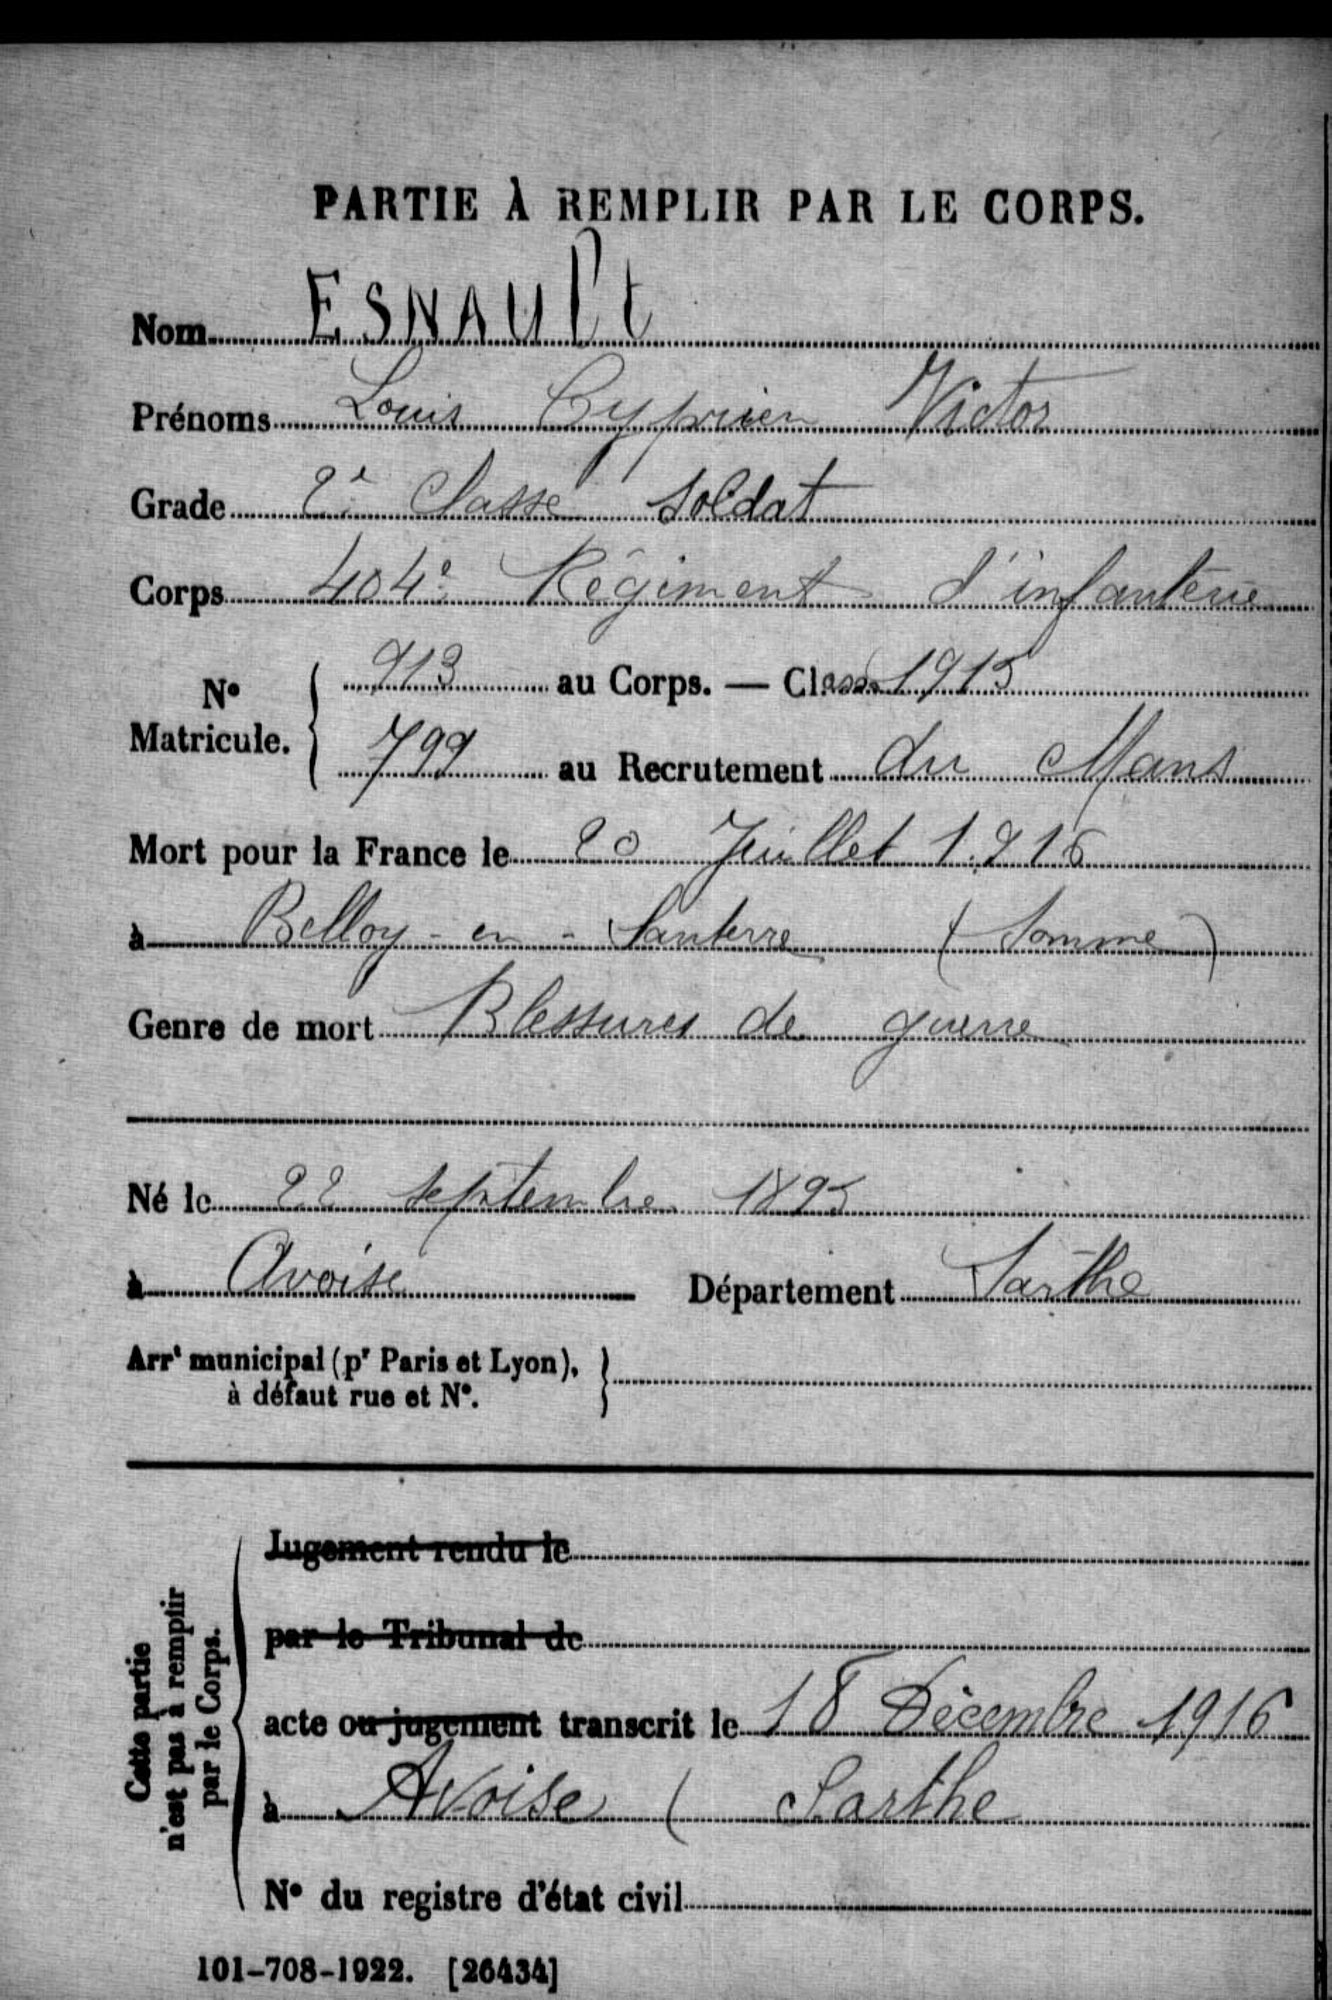 PARTIE À REMPLIR PAR LE CORPS.
Nom ESNAULt
Prénoms Louis Cyprien Victor
Grade 2e Classe soldat
Corps 404e Régiment d'infanterie
No Matricule. { 913 au Corps. — Classe 1915
799 au Recrutement du Mans
Mort pour la France le 20 Juillet 1.916
à Belloy-en-Santerre (Somme)
Genre de mort Blessures de guerre
Né le 22 septembre 1895
à Avoise Département Sarthe
Arrt municipal (pr Paris et Lyon),
à défaut rue et No.
Cette partie
n'est pas à remplir
par le Corps.
Jugement rendu le
par le Tribunal de
acte ou jugement transcrit le 18 Décembre 1916
à Avoise ( Sarthe
No du registre d'état civil
101-708-1922. [26434]